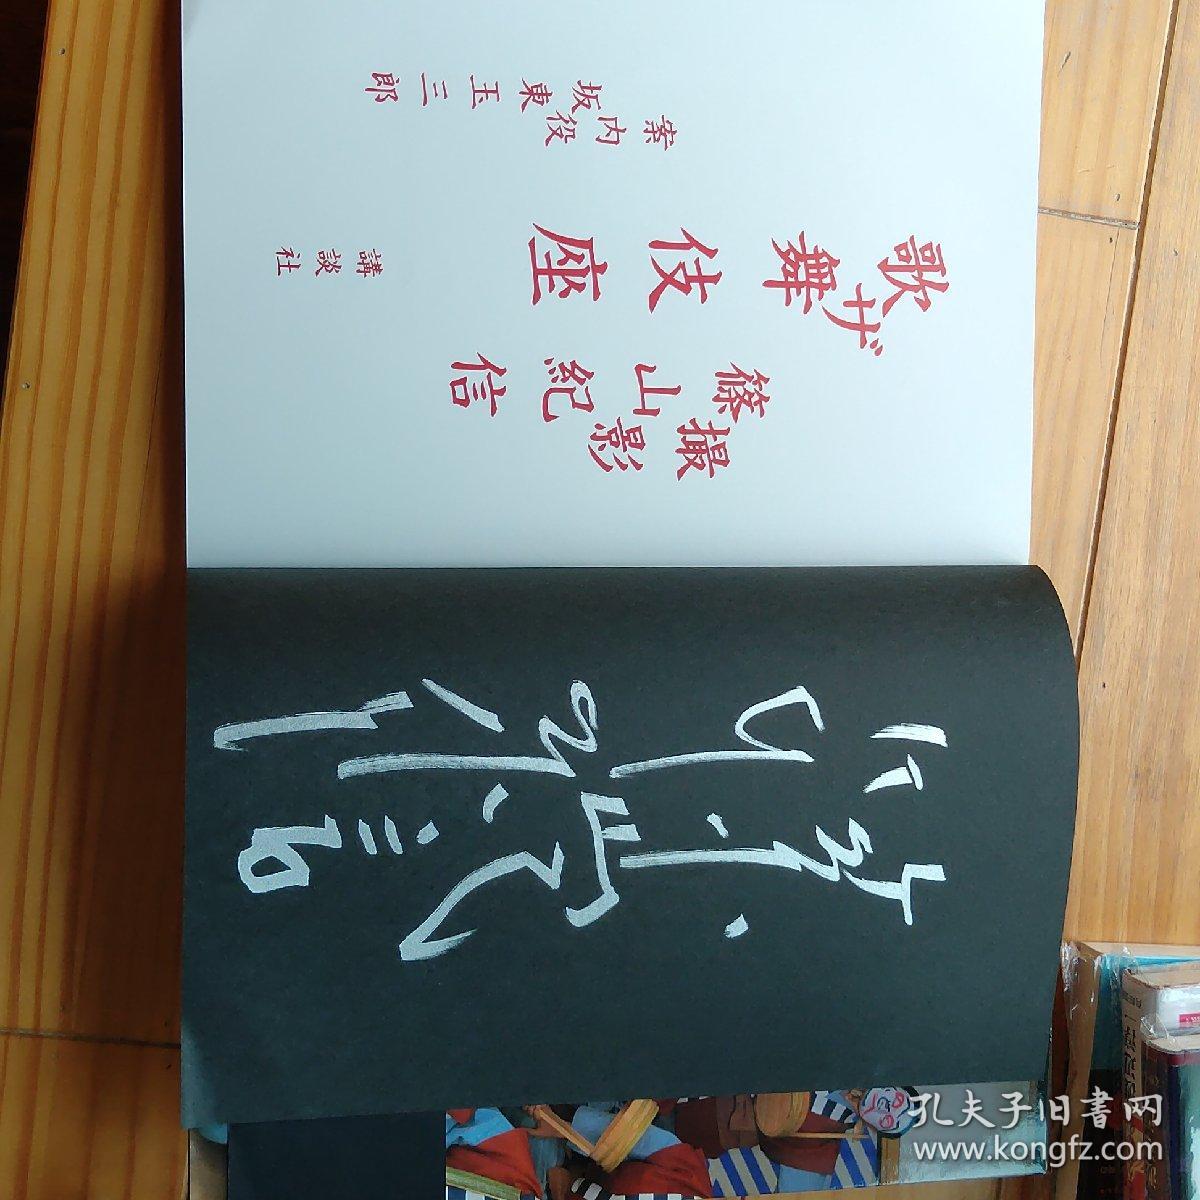 案内役
坂東玉三郎
ザ
歌舞伎座
撮影
篠山紀信
講談社
篠山紀信
孔夫子旧書网
www.kongfz.com